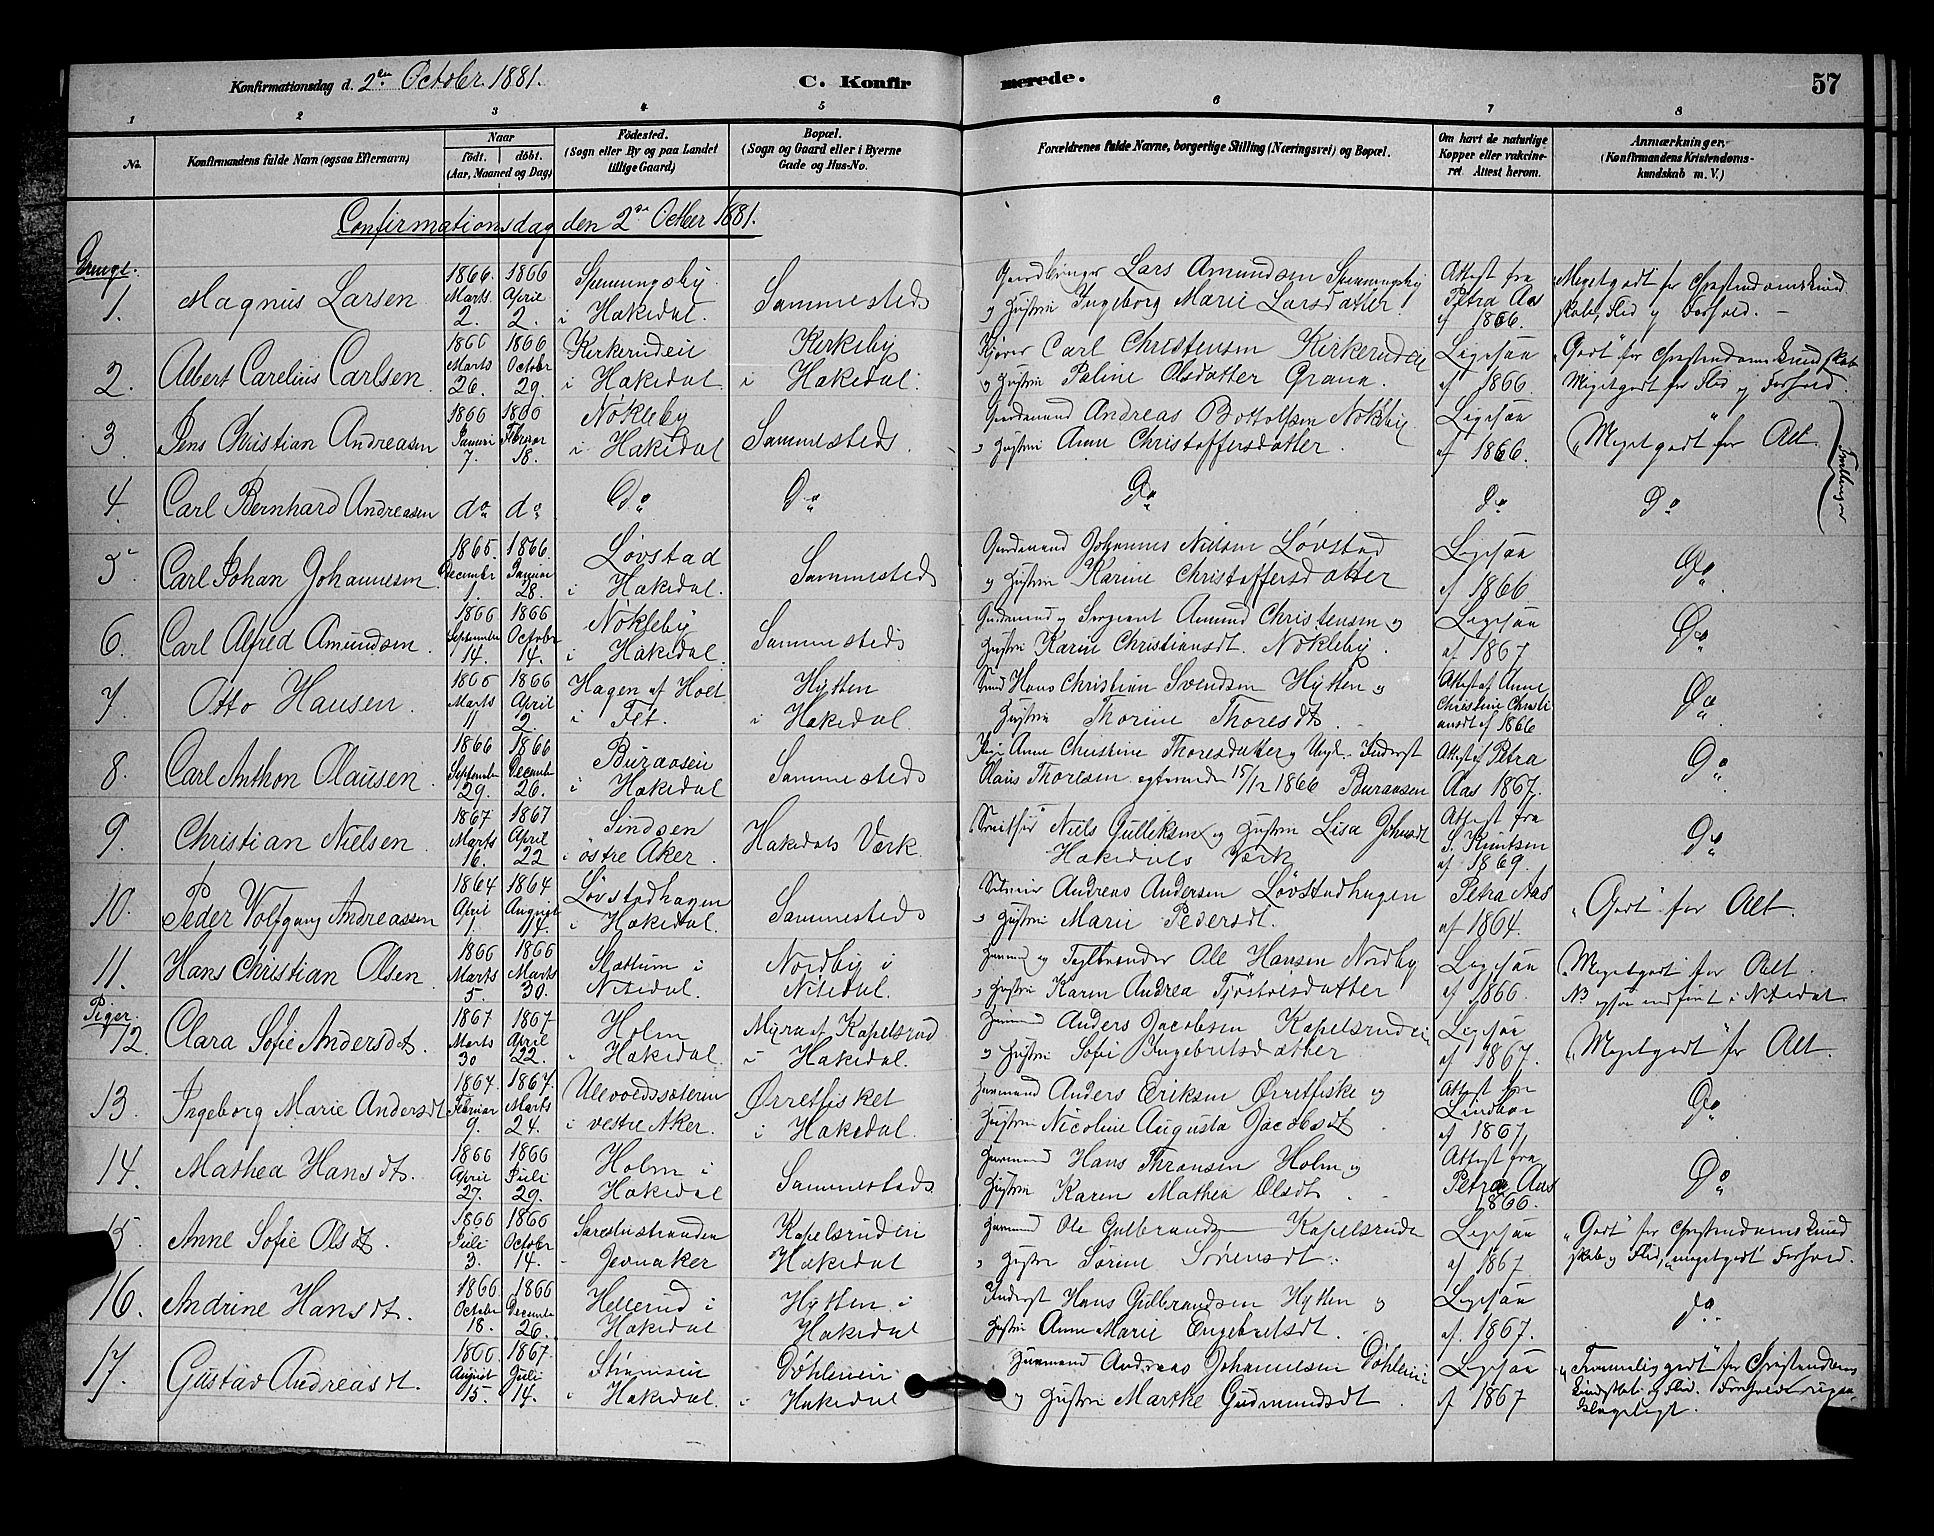 Konfirmationsdag d. 2den October 1881.
C. Konfirmerede.
57
1 2 3 4 5 6 7 8
No.
Konfirmandens fulde Navn (ogsaa Efternavn)
Naar
födt. döbt.
(Aar, Maaned og Dag)
Födested.
(Sogn eller By og paa Landet
tillige Gaard)
Bopæl.
(Sogn og Gaard eller i Byerne
Gade og Hus-No.
Forældrenes fulde Navne, borgerlige Stilling (Næringsvei) og Bopæl.
Om havt de naturlige
Kopper eller vakcine-
ret. Attest herom.
Anmærkninger.
(Konfirmandens Kristendoms-
kundskab m. V.)
Confirmationsdag den 2den October 1881.
Drenge.
1. Magnus Larsen
1866. Marts 2.
1866 April 2.
i Hakedal.
Sammesteds
Lars Amundsen
og Hustru Ingeborg Marie Larsdatter
Attest fra Petra Aas af 1866.
Megetgodt for Christendomskund
skab, Flid og Forhold.
2. Albert Carelius Carlsen
1866 Marts 26.
1866 October 29.
Kirkerudeie i Hakedal
Kirkeby i Hakedal.
Carl Christensen Kirkerudeie
og Hustru Paline Olsdatter Grana.
Ligesaa af 1866.
"Godt" for Christendomskundskab
Megetgodt for Flid og Forhold.
3. Jens Christian Andreasen
1866 Januri 7.
1866 Februar 18.
Nökleby i Hakedal
Sammesteds
Gaardmand Andreas Bottolfsen Nökleby
og Hustru Anne Christoffersdatter.
Ligesaa af 1866.
"Megetgodt" for Alt.
Tvillinger
4. Carl Bernhard Andreasen
do do Do Do Do Do Do
5. Carl Johan Johannesen
1865. December 1.
1866. Januar 28.
Løvstad i Hakedal.
Sammesteds
Gaardmand Johannes Nilsen Løvstad
og Hustru Karine Christoffersdatter
Ligesaa af 1866
Do
6. Carl Alfred Amundsen
1866 September 14.
1866 October 14.
Nökleby i Hakedal.
Sammesteds
Gaardmand og Sergeant Amund Christensen og
Hustru Karine Christiansdt. Nökleby.
Ligesaa af 1867
Do
7. Otto Hansen
1866 Marts 11
1866 April 2.
Hagen af Holt i Fet.
Hytten i Hakedal
Hans Christian Svendsen Hytten og
Hustru Thorine Thoresdt.
Attest af Anne Christine Christi
ansdt af 1866
Do
8. Carl Anthon Olausen
1866 September 29.
1866 December 26.
Buraasen i Hakedal
Sammesteds
Pige Anne Christine Thoresdatter og Ungk. Inderst
Olaus Thoresen egteviede 15/12 1866 Buraasen
Attest af Petra Aas 1867.
Do
9. Christian Nielsen
1867 Marts 16.
1867 April 22
Sindsen i östre Aker.
Hakedals Værk.
Niels Gulliksen og Hustru Lisa Johnsdt
Hakedals Værk
Attest fra S. Knutsen af 1869.
Do
10. Peder Wolfgang Andreassen
1864 April 1.
1864 August 14.
Løvstadhagen i Hakedal.
Sammesteds
Andreas Andersen Løvstadhagen
og Hustru Marie Pedersdt.
Petra Aas af 1864.
"Godt" for Alt.
11. Hans Christian Olsen
1866 Marts 5.
1866 Marts 30.
Slattum i Nitedal.
Nordby i Nitedal.
Husmand og Teglbrænder Ole Hansen Nordby
og Hustru Karen Andrea Tjöstolsdatter
Ligesaa af 1866.
"Megetgodt" for Alt.
NB ogsaa indført i Nitedal
Piger.
12. Clara Sofie Andersdt.
1867 Marts 30
1867 April 22.
Holm i Hakedal.
Myra af Kapelsrud i Hakedal.
Husmand Anders Jacobsen Kapelsrudeie
og Hustru Sofie Ingebretsdatter
Ligesaa af 1867.
"Megetgodt" for Alt.
13. Ingeborg Marie Andersdt
1864. Februar 9.
1864. Marts 24.
Ullevoldssæteren i vestre Aker.
Ørretfisket i Hakedal.
Husmand Anders Eriksen Ørretfiske og
Hustru Nicoline Augusta Jacobsdt
Attest fra Lindboe af 1867,
Do
14. Mathea Hansdt.
1866 April 27.
1866 Juli 29.
Holm i Hakedal
Sammesteds
Husmand Hans Thronsen Holm og
Hustru Karen Mathea Olsdt.
Attest fra Petra Aas 1866.
Do
15. Anne Sofie Olsdt.
1866 Juli 3.
1866 October 14.
Jevnaker
Kapelsrudeie Hakedal
Husmand Ole Gulbrandsen Kapelsrude
og Hustru Sörine Sörensdt.
Ligesaa af 1867
"Godt" for Christendomskund
skab og Flid, "megetgodt" Forhold.
16. Andrine Hansdt.
1866 October 18.
1866 December 26.
Hellerud i Hakedal
Hytten i Hakedal
Inderst Hans Gulbrandsen Hytten og
Hustru Anne Marie Engebretsdt.
Ligesaa af 1867.
do.
17. Gustav Andreasdt.
1866 August 15.
1867. Juli 14.
Strømseie i Hakedal.
Döhleneie i Hakedal
Husmand Andreas Johannesen Döhleneie
og Hustru Marthe Gudmundsdt.
Ligesaa af 1867
"Temmeliggodt" for Christendoms
kundskab og Flid. Forhold
klageligt.